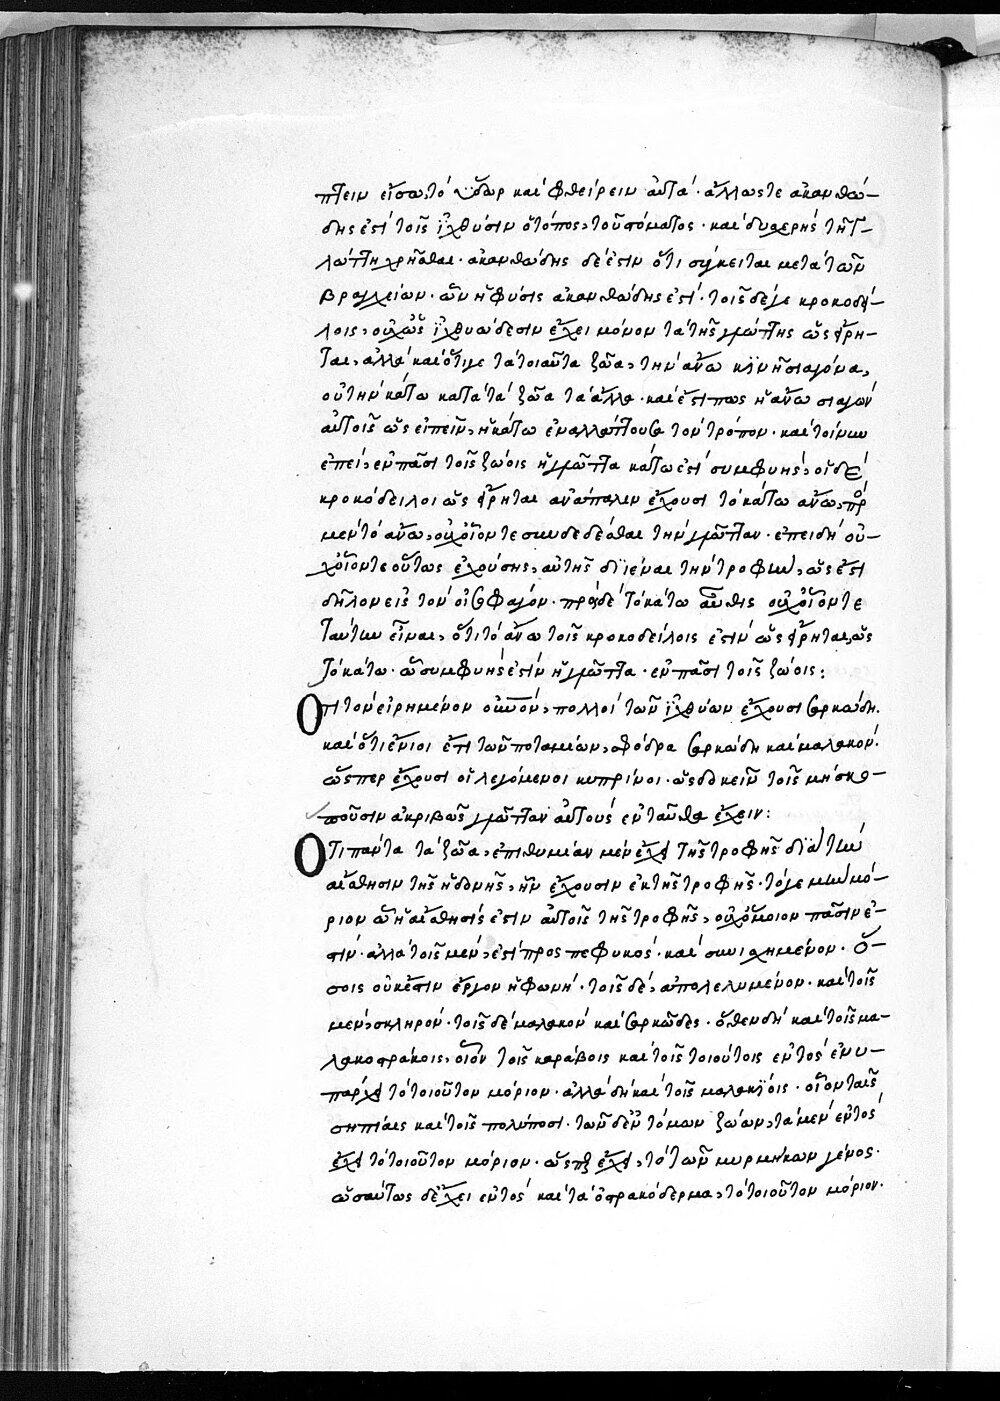 πτειν εἴσω τὸ ὕδωρ καὶ φθείρειν αὐτά· ἄλλως τε ἀκανθώ-
δης ἐστὶ τοῖς ἰχθύσιν ὁ τόπος τοῦ στόματος· καὶ δυσχερὴς τῇ γ-
λώττῃ χρῆσθαι· ἀκανθώδης δέ ἐστιν ὅτι σύγκειται μετὰ τῶν
βραγχείων· ὧν ἡ φύσις ἀκανθώδης ἐστί· τοῖς δέ γε κροκοδεί-
λοις, οὐχ ὡς ἰχθυώδεσιν ἔχει μόνον τὰ τῆς γλώττης ὡς εἴρη-
ται, ἀλλὰ καὶ ὅτι γε τὰ τοιαῦτα ζῶα, τὴν ἄνω κινεῖ σιαγόνα,
οὐ τὴν κάτω κατὰ τὰ ζῶα τὰ ἄλλα· καὶ ἔστι πως ἡ ἄνω σιαγὼν
αὐτοῖς ὡς εἰπεῖν, ἡ κάτω ἐναλλάττουσα τὸν τρόπον· καὶ τοίνυν
ἐπεὶ, ἐν πᾶσι τοῖς ζώοις ἡ γλῶττα κάτω ἐστὶ συμφυής, οἱ δὲ
κροκόδειλοι ὡς εἴρηται ἀνάπαλιν ἔχουσι τὸ κάτω ἄνω, πρὸς
μὲν τὸ ἄνω, οὐχ οἷόν τε συνδεδέσθαι τὴν γλῶτταν· ἐπειδὴ οὐ-
χ οἷόν τε οὕτως ἐχούσης, αὐτῆς διϊέναι τὴν τροφὴν, ὡς ἔστι
δῆλον εἰς τὸν οἰσοφάγον· πρὸς δὲ τὸ κάτω αὖθις οὐχ οἷόν τε
ταύτην εἶναι, ὅτι τὸ ἄνω τοῖς κροκοδείλοις ἐστὶν ὡς εἴρηται, ὡς
τὸ κάτω· ᾧ συμφυής ἐστὶν ἡ γλῶττα· ἐν πᾶσι τοῖς ζώοις:
Ὅτι τὸν εἰρημένον οὐρανὸν, πολλοὶ τῶν ἰχθύων ἔχουσι σαρκώδη.
καὶ ὅτι ἔνιοι ἔτι τῶν ποταμίων, σφόδρα σαρκώδη καὶ μαλακόν.
ὥσπερ ἔχουσι οἱ λεγόμενοι κυπρίνοι· ὡς δοκεῖν τοῖς μὴ σκο-
ποῦσιν ἀκριβῶς γλῶτταν αὐτοὺς ἐνταῦθα ἔχειν:
Ὅτι πάντα τὰ ζῶα, ἐπιθυμίαν μὲν ἔχει τῆς τροφῆς διὰ τὴν
αἴσθησιν τῆς ἡδονῆς, ἣν ἔχουσιν ἐκ τῆς τροφῆς· τό γε μὴν μό-
ριον ᾧ ἡ αἴσθησίς ἐστιν αὐτοῖς τῆς τροφῆς, οὐχ ὅμοιον πᾶσίν ἐ-
στιν· ἀλλὰ τοῖς μὲν, ἐστὶ προσπεφυκός· καὶ συνισχημένον· ὅ-
σοις οὐκ ἔστιν ἔργον ἡ φωνή· τοῖς δὲ, ἀπολελυμένον· καὶ τοῖς
μὲν, σκληρόν· τοῖς δὲ μαλακὸν καὶ σαρκῶδες· ὅθεν δὴ καὶ τοῖς μα-
λακοστράκοις, οἷον τοῖς καράβοις καὶ τοῖς τοιούτοις ἐντὸς ἐνυ-
πάρχει τὸ τοιοῦτον μόριον· ἀλλὰ δὴ καὶ τοῖς μαλακίοις· οἷον ταῖς
σηπίαις καὶ τοῖς πολύποσι· τῶν δὲ ἐντόμων ζώων, τὰ μὲν ἐντὸς
ἔχει τὸ τοιοῦτον μόριον· ὥσπερ ἔχει, τὸ τῶν μυρμήκων γένος·
ὡσαύτως δὲ ἔχει ἐντὸς καὶ τὰ ὀστρακόδερμα, τὸ τοιοῦτον μόριον·